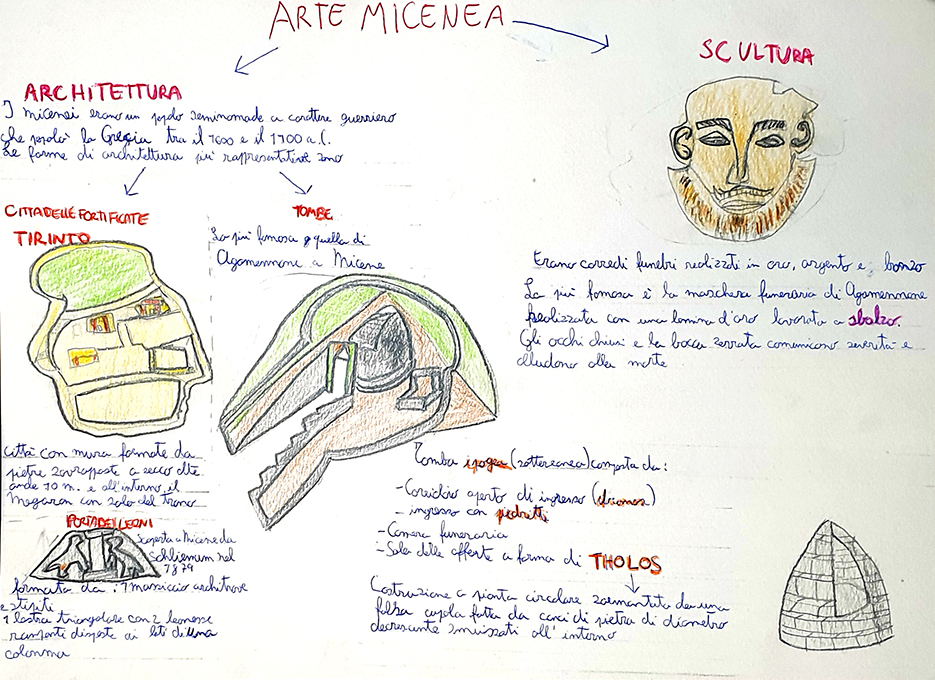 ARTE MICENEA
ARCHITETTURA
I micenei erano un popolo seminomade a carattere guerriero
che popolò la Grecia tra il 1600 e il 1100 a.C.
Le forme di architettura più rappresentative sono
CITTADELLE FORTIFICATE
TIRINTO
città con mura formate da
pietre sovrapposte a secco alte
anche 10 m. e all'interno il
Megaron con sala del trono
PORTA DEI LEONI
scoperta a Micene da
Schliemann nel
1879
formata da: 1 massiccio architrave
e stipiti
1 lastra triangolare con 2 leonesse
rampanti disposte ai lati di una
colonna
TOMBE
La più famosa è quella di
Agamennone a Micene
Tomba ipogea (sotterranea) composta da:
-Corridoio aperto di ingresso (dromos)
- ingresso con piedritti
-Camera funeraria
-Sala delle offerte a forma di THOLOS
Costruzione a pianta circolare sormontata da una
falsa cupola fatta da conci di pietra di diametro
decrescente smussati all'interno
SCULTURA
Erano corredi funebri realizzati in oro, argento e bonzo
La più famosa è la maschera funeraria di Agamennone
Realizzata con una lamina d'oro lavorata a sbalzo.
Gli occhi chiusi e la bocca serrata comunicano severità e
alludono alla morte